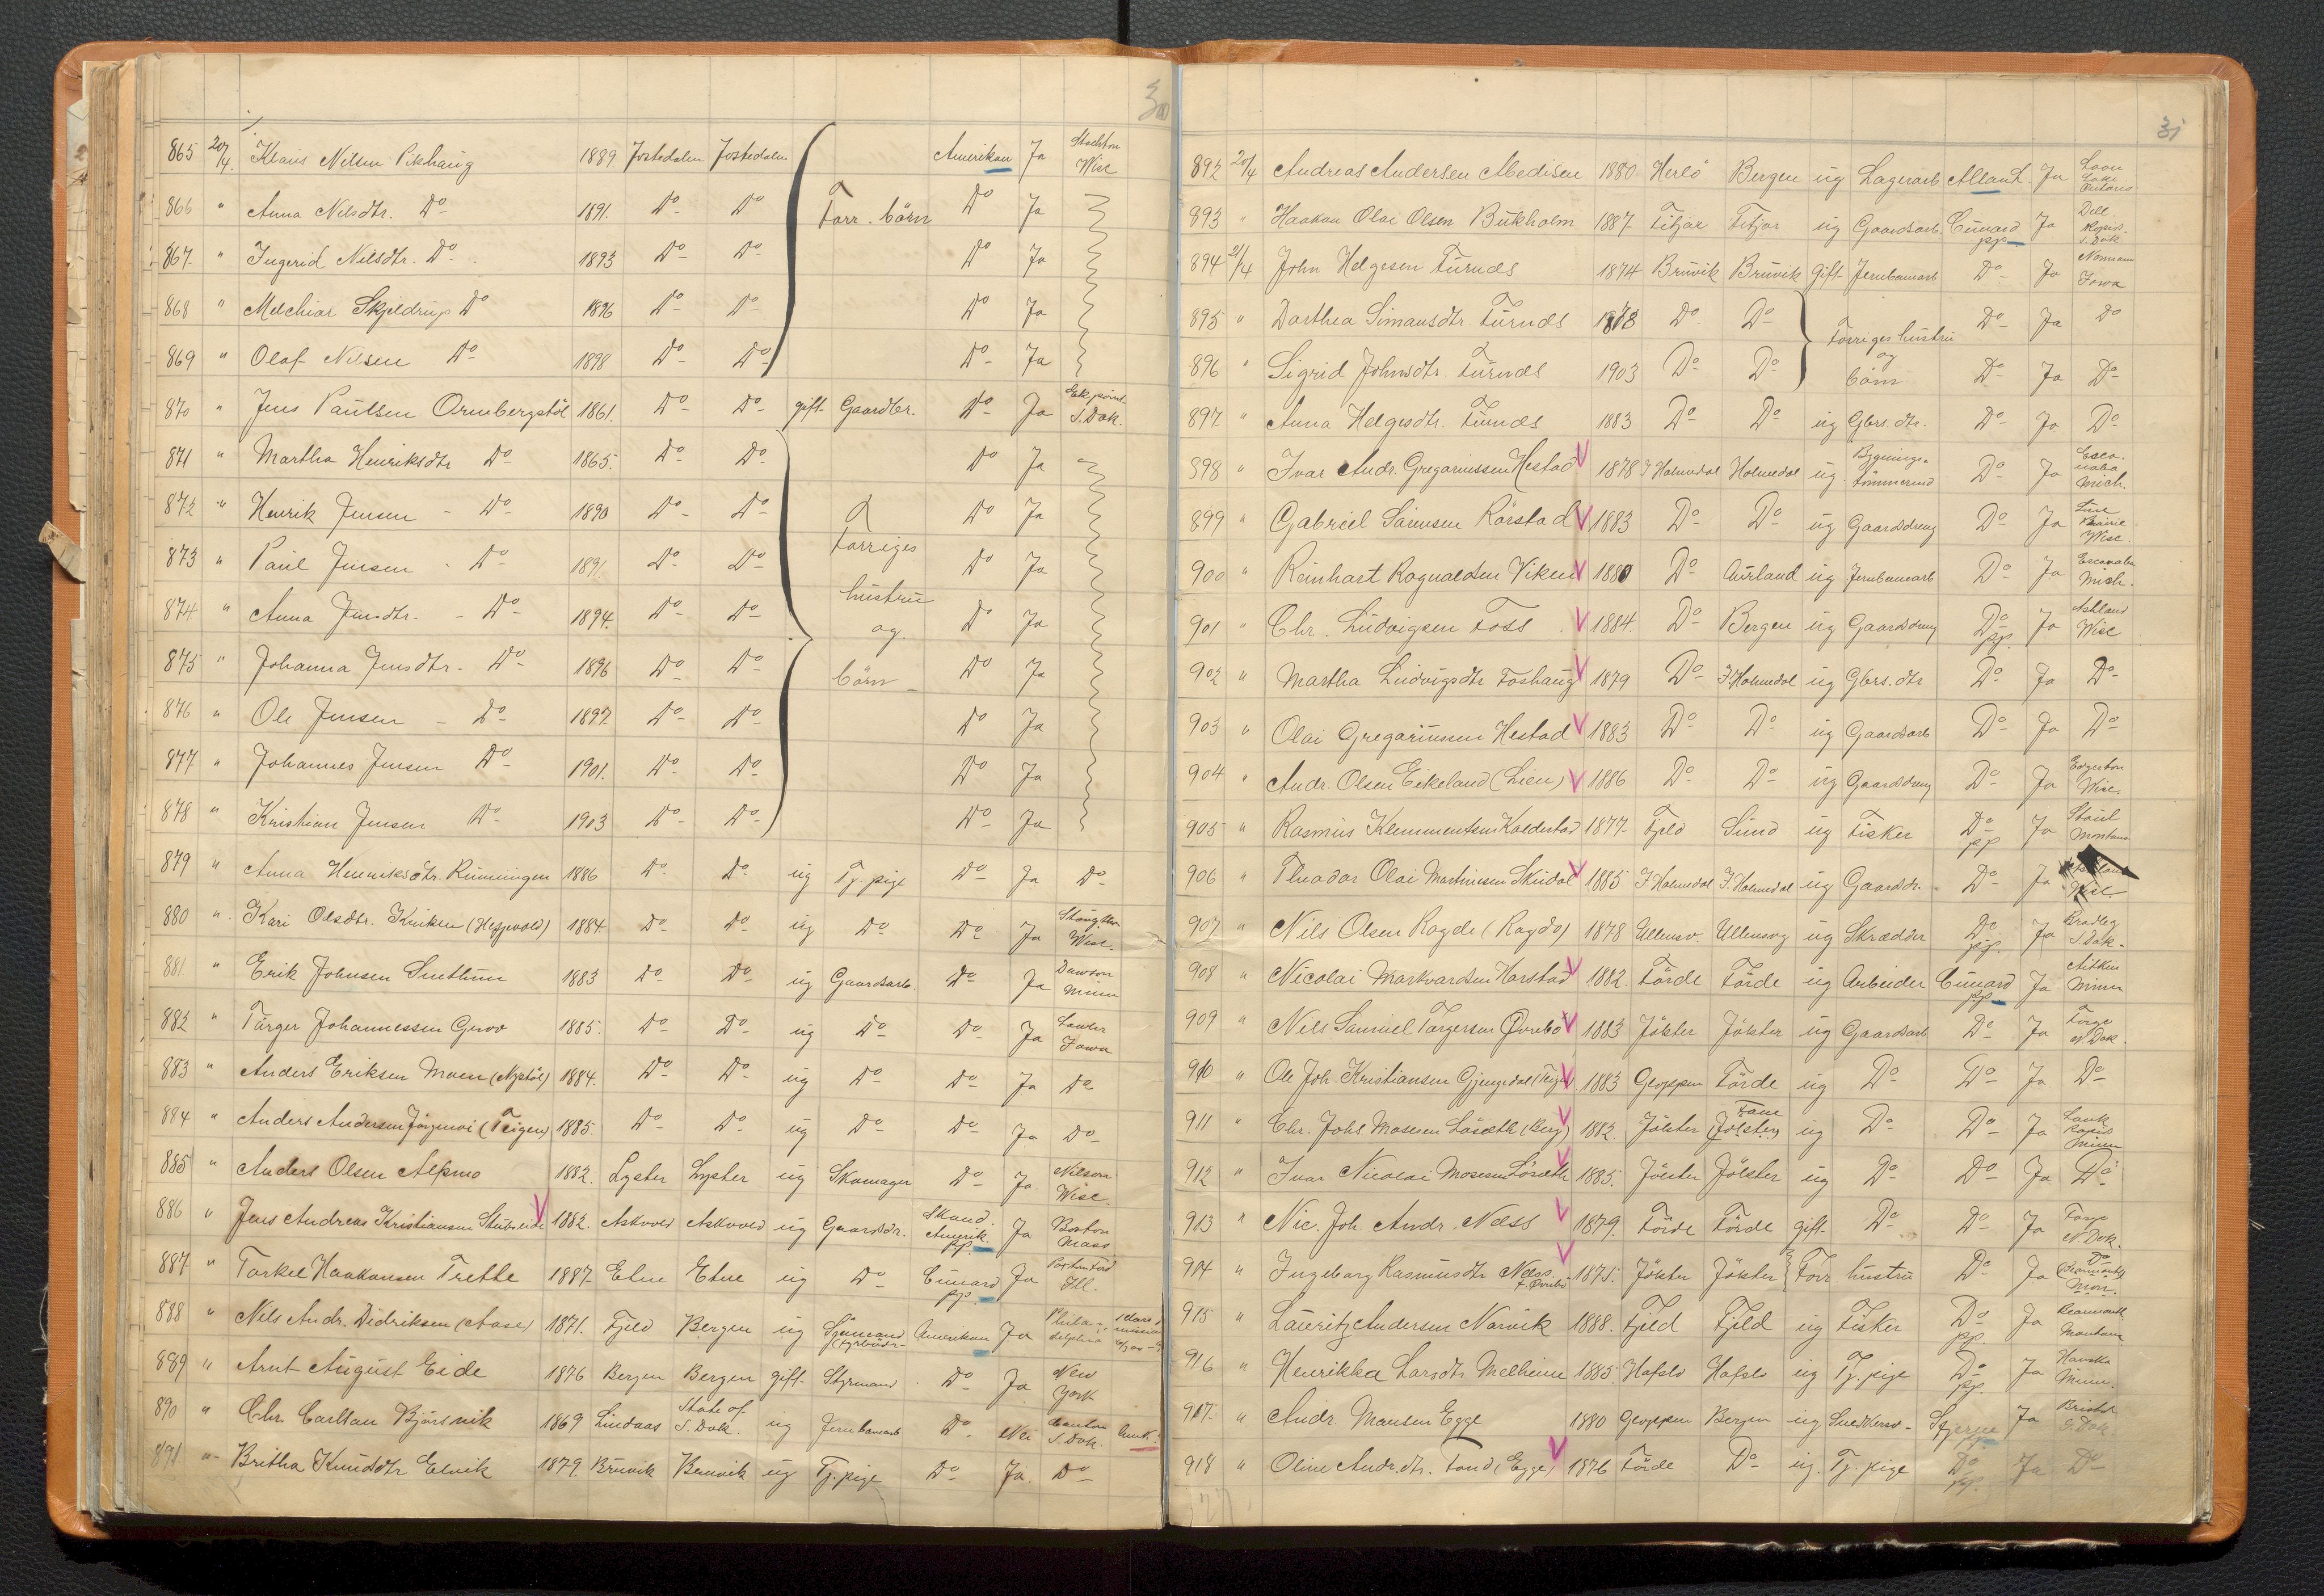 30
865 20/4 Klaus Nilsen Pikhaug 1889 Jostedalen Jostedalen Amerikan Ja Wisc
866 " Anna Nilsdtr. Do 1891. Do Do Forr. börn Do Ja
867. " Ingerid Nilsdtr. Do 1893 Do Do Do Ja
868 " Melchior Skjeldrup Do 1896 Do Do Do Ja
869 " Olaf Nilsen Do 1898 Do Do Do Ja
870 " Jens Paulsen Ormbergstöl 1861. Do Do gift Gaardbr. Do Ja Elk point S. Dak.
871 " Martha Henriksdtr Do 1865. Do Do Do Ja
872 " Henrik Jensen Do 1890 Do Do Forriges Do Ja
873 " Paul Jensen Do 1891 Do Do hustru Do Ja
874 " Anna Jensdtr. Do 1894. Do Do og Do Ja
875 " Johanna Jensdtr. Do 1896 Do Do börn Do Ja
876 " Ole Jensen Do 1897 Do Do Do Ja
877 " Johannes Jensen Do 1901. Do Do Do Ja
878 " Kristian Jensen Do 1903 Do Do Do Ja
879 " Anna Henriksdtr. Rünningen 1886 Do Do ug Tj. pige Do Ja Do
880 " Kari Olsdtr. Kruken (Heggvold) 1884 Do Do ug Do Do Ja Stoughton Wisc.
881 " Erik Johnsen Snethun 1883 Do Do ug Gaardsarb. Do Ja Dawson Minn
882 " Törger Johannessen Grov 1885. Do Do ug Do Do Ja Lawler Iowa
883 " Anders Eriksen Moen (Nystöl) 1884. Do Do ug Do Do Ja Do
884 " Anders Andersen (Teigen) 1885. Do Do ug Do Do Ja Do
885 " Anders Olsen Alsmo 1882. Lyster Lyster ug Skomager Do Ja Nilson Wisc
886 " Jens Andreas Kristiansen Stubseid V 1882. Askvold Askvold ug Gaardsdr. Skand. Amerik. pp. Ja Boston Mass
887 " Torkel Haakonsen Trette 1887 Etne Etne ug Do Cunard pp. Ja Ill.
888 " Nils Andr. Didriksen (Aase) 1871. Fjeld Bergen ug Sömand (fyrböder) Amerikan Ja Philadelphia
889 " Arnt August Eide 1876 Bergen Bergen gift Styrmand Do Ja New York
890 " Chr. Carlsen Björsvik 1869 Lindaas State of S. Dak. ug Jernbanearb Do Nei Canton S. Dak.
891 " Britha Knudsdtr Elvik 1879. Bruvik Bruvik ug Tj. pige Do Ja. Do
31
892 20/4 Andreas Andersen Medisen 1880 Herlö Bergen ug Lagerarb Allanl. Ja Ontario
893 " Haakon Olai Olsen Bukholm 1887 Fitjar Fitjar ug Gaardsarb. Cunard pp Ja Dell Rapids S. Dak
894 21/4 John Helgesen Furnds 1874 Bruvik Bruvik Gift Jernbanearb Do Ja Iowa
895 " Dorthea Simonsdtr. Furnds 1878 Do Do Forriges hustru Do Ja Do
896 " Sigrid Johnsdtr. Furnds 1903 Do Do og börn Do Ja Do
897. " Anna Helgesdtr. Furnds 1883 Do Do ug Gbrs. dtr. Do Ja Do
898 " Ivar Andr. Gregoriussen Hestad V 1878 Y Holmedal Holmedal ug Bygningstömmermd Do Ja Escanaba Mich.
899 " Gabriel Sörensen Rörstad V 1883 Do Do ug Gaarddreng Do Ja Prairie Wisc.
900 " Reinhart Rognaldsen Viken V 1880 Do Aurland ug Jernbanearb Do Ja Escanaba Mich.
901 " Chr. Ludvigsen Foss V 1884. Do Bergen ug Gaarddreng Do pp. Ja Ashland Wisc
902 " Martha Ludvigsdtr Foshaug V 1879 Do I. Holmedal ug Gbrs. dtr Do Ja Do
903 " Olai Gregoriussen Hestad V 1883 Do Do ug Gaardsarb Do Ja Do
904 " Andr. Olsen Eikeland (Lien) V 1886 Do Do ug Gaarddreng Do Ja Edgerton Wisc.
905 " Rasmus Klementsen Kaldestad 1877 Fjeld Sund ug Fisker Do pp Ja Montana
906 " Theodor Olai Martinusen Skudal V 1885 I Holmedal I. Holmedal ug Gaarddr. Do Ja Wisc.
907 " Nils Olsen Ragde (Ragde) 1878 Ullensv. Ullensvg ug Skrædder Do pp. Ja Bradley S. Dak.
908 " Nicolai Markvardsen Harstad V 1882. Förde Förde ug Arbeider Cunard pp Ja Aitkin Minn
909 " Nils Samuel Torgersen Övrebö V 1883 Jölster Jölster ug Gaardsarb Do Ja Forge N Dak.
910 " Ole Joh. Kristiansen Gjengedal V 1883 Gloppen Förde ug Do Do Ja Do
911 " Chr. Johs. Mosesen Löseth (Berg) V 1882. Jölster Fane (Jölster) ug Do Do Ja Rapids Minn
912 " Ivar Nicolai Mosesen Löseth V 1885. Jölster Jölster ug Do Do Ja Do
913 " Nic. Joh. Andr. Ness V 1879. Förde Förde gift Do Do Ja N Dak.
914 " Ingeborg Rasmusdtr Ness f. Övrebö V 1875. Jölster Jölster Forr hustru Do Ja Do Mon.
915 " Lauritz Andersen Narvik 1888. Fjeld Fjeld ug Fisker Do pp Ja Montana
916 " Henrikka Larsdtr Melheim 1885. Hafslo Hafslo ug Tj. pige Do pp. Ja Hanska Minn.
917. " Andr. Monsen Egge 1880 Gloppen Bergen ug Snedkersv. Stjerne Ja Bristol S Dak.
918 " Oline Andr. dtr. Fond (Egge) V 1876 Förde Do ug. Tj. pige Do pp. Ja Do